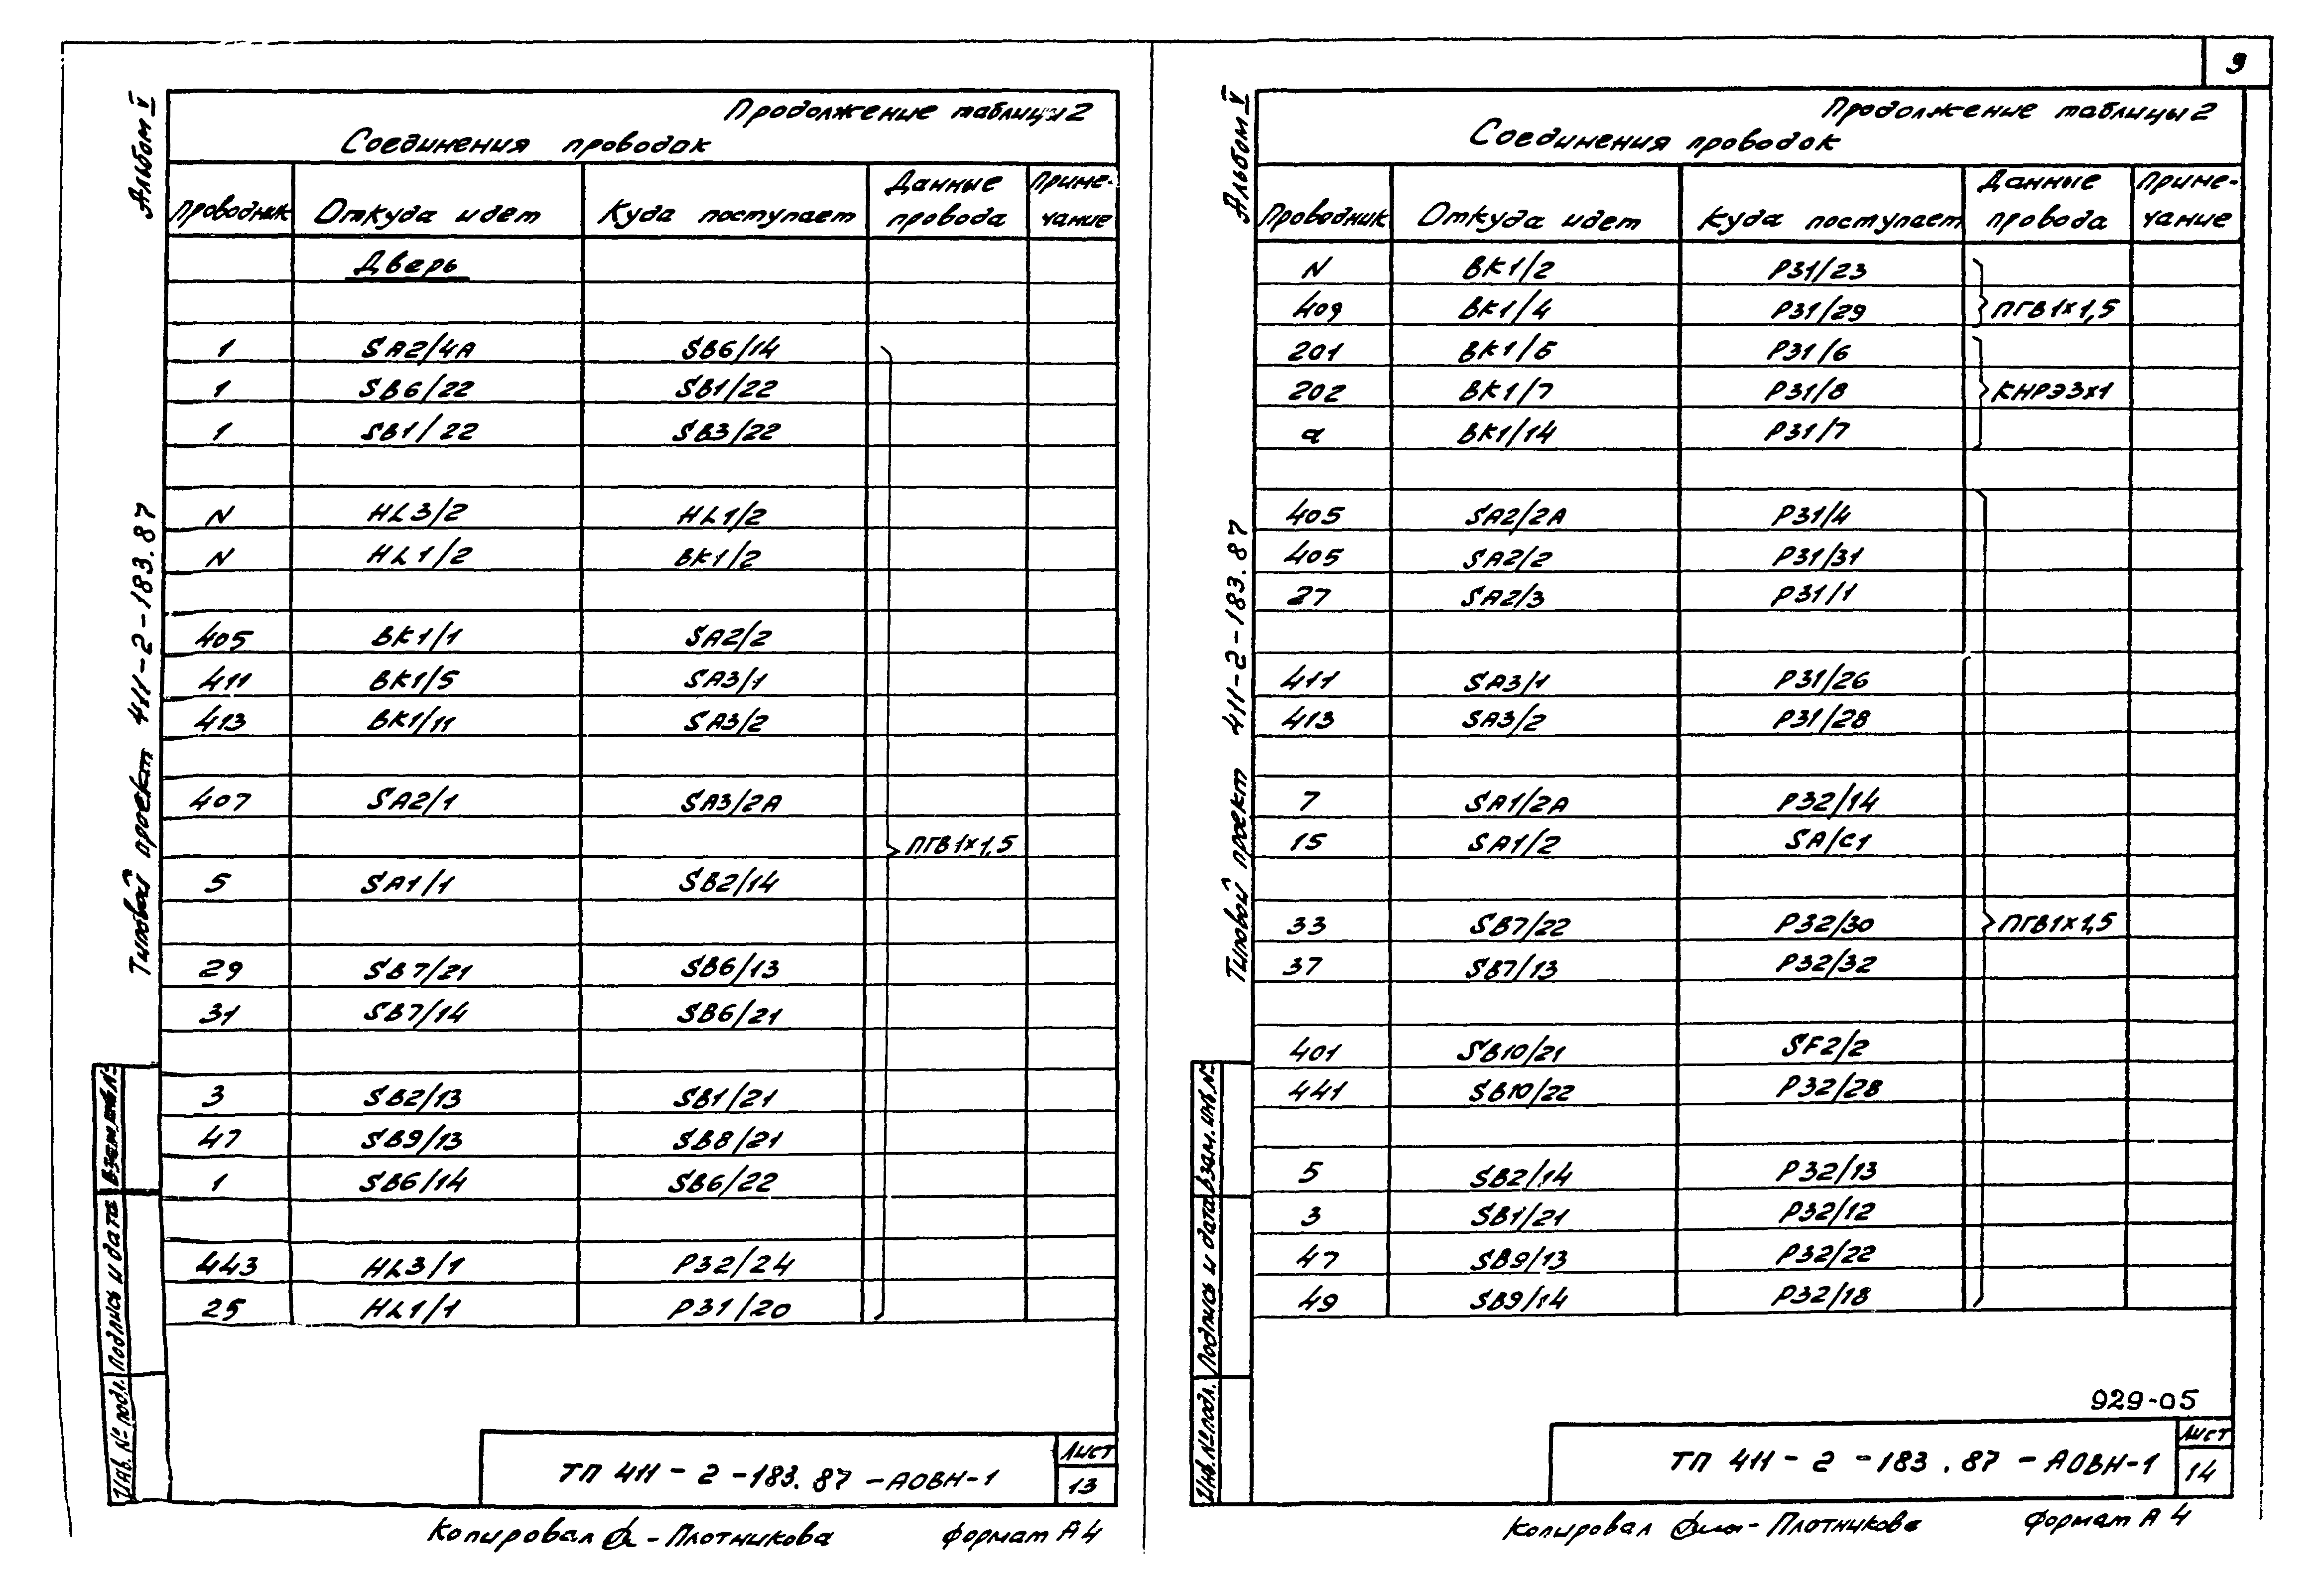 9
Альбом V
Типовой проект 411-2-183.87
Взам. инв. №
Подпись и дата
Инв. № подл.
Продолжение таблицы 2
Соединения проводок
Проводник Откуда идет Куда поступает Данные провода Примечание
Дверь
1 SA2/4A SB6/14
1 SB6/22 SB1/22
1 SB1/22 SB3/22
N HL3/2 HL1/2
N HL1/2 BK1/2
405 BK1/1 SA2/2
411 BK1/5 SA3/1
413 BK1/11 SA3/2
407 SA2/1 SA3/2A
ПГВ1×1,5
5 SA1/1 SB2/14
29 SB7/21 SB6/13
31 SB7/14 SB6/21
3 SB2/13 SB1/21
47 SB9/13 SB8/21
1 SB6/14 SB6/22
443 HL3/1 Р32/24
25 HL1/1 Р31/20
ТП 411-2-183.87-АОВН-1
Лист
13
Копировал - Плотникова Формат А4
Альбом V
Типовой проект 411-2-183.87
Взам. инв. №
Подпись и дата
Инв. № подл.
Продолжение таблицы 2
Соединения проводок
Проводник Откуда идет Куда поступает Данные провода Примечание
N BK1/2 Р31/23
409 BK1/4 Р31/29 ПГВ1×1,5
201 BK1/6 Р31/6
202 BK1/7 Р31/8 КНРЭ3×1
a BK1/14 Р31/7
405 SA2/2A Р31/4
405 SA2/2 Р31/31
27 SA2/3 Р31/1
411 SA3/1 Р31/26
413 SA3/2 Р31/28
7 SA1/2A Р32/14
15 SA1/2 SA/C1
33 SB7/22 Р32/30 ПГВ1×1,5
37 SB7/13 Р32/32
401 SB10/21 SF2/2
441 SB10/22 Р32/28
5 SB2/14 Р32/13
3 SB1/21 Р32/12
47 SB9/13 Р32/22
49 SB9/14 Р32/18
929-05
ТП 411-2-183.87-АОВН-1
Лист
14
Копировал - Плотникова Формат А4